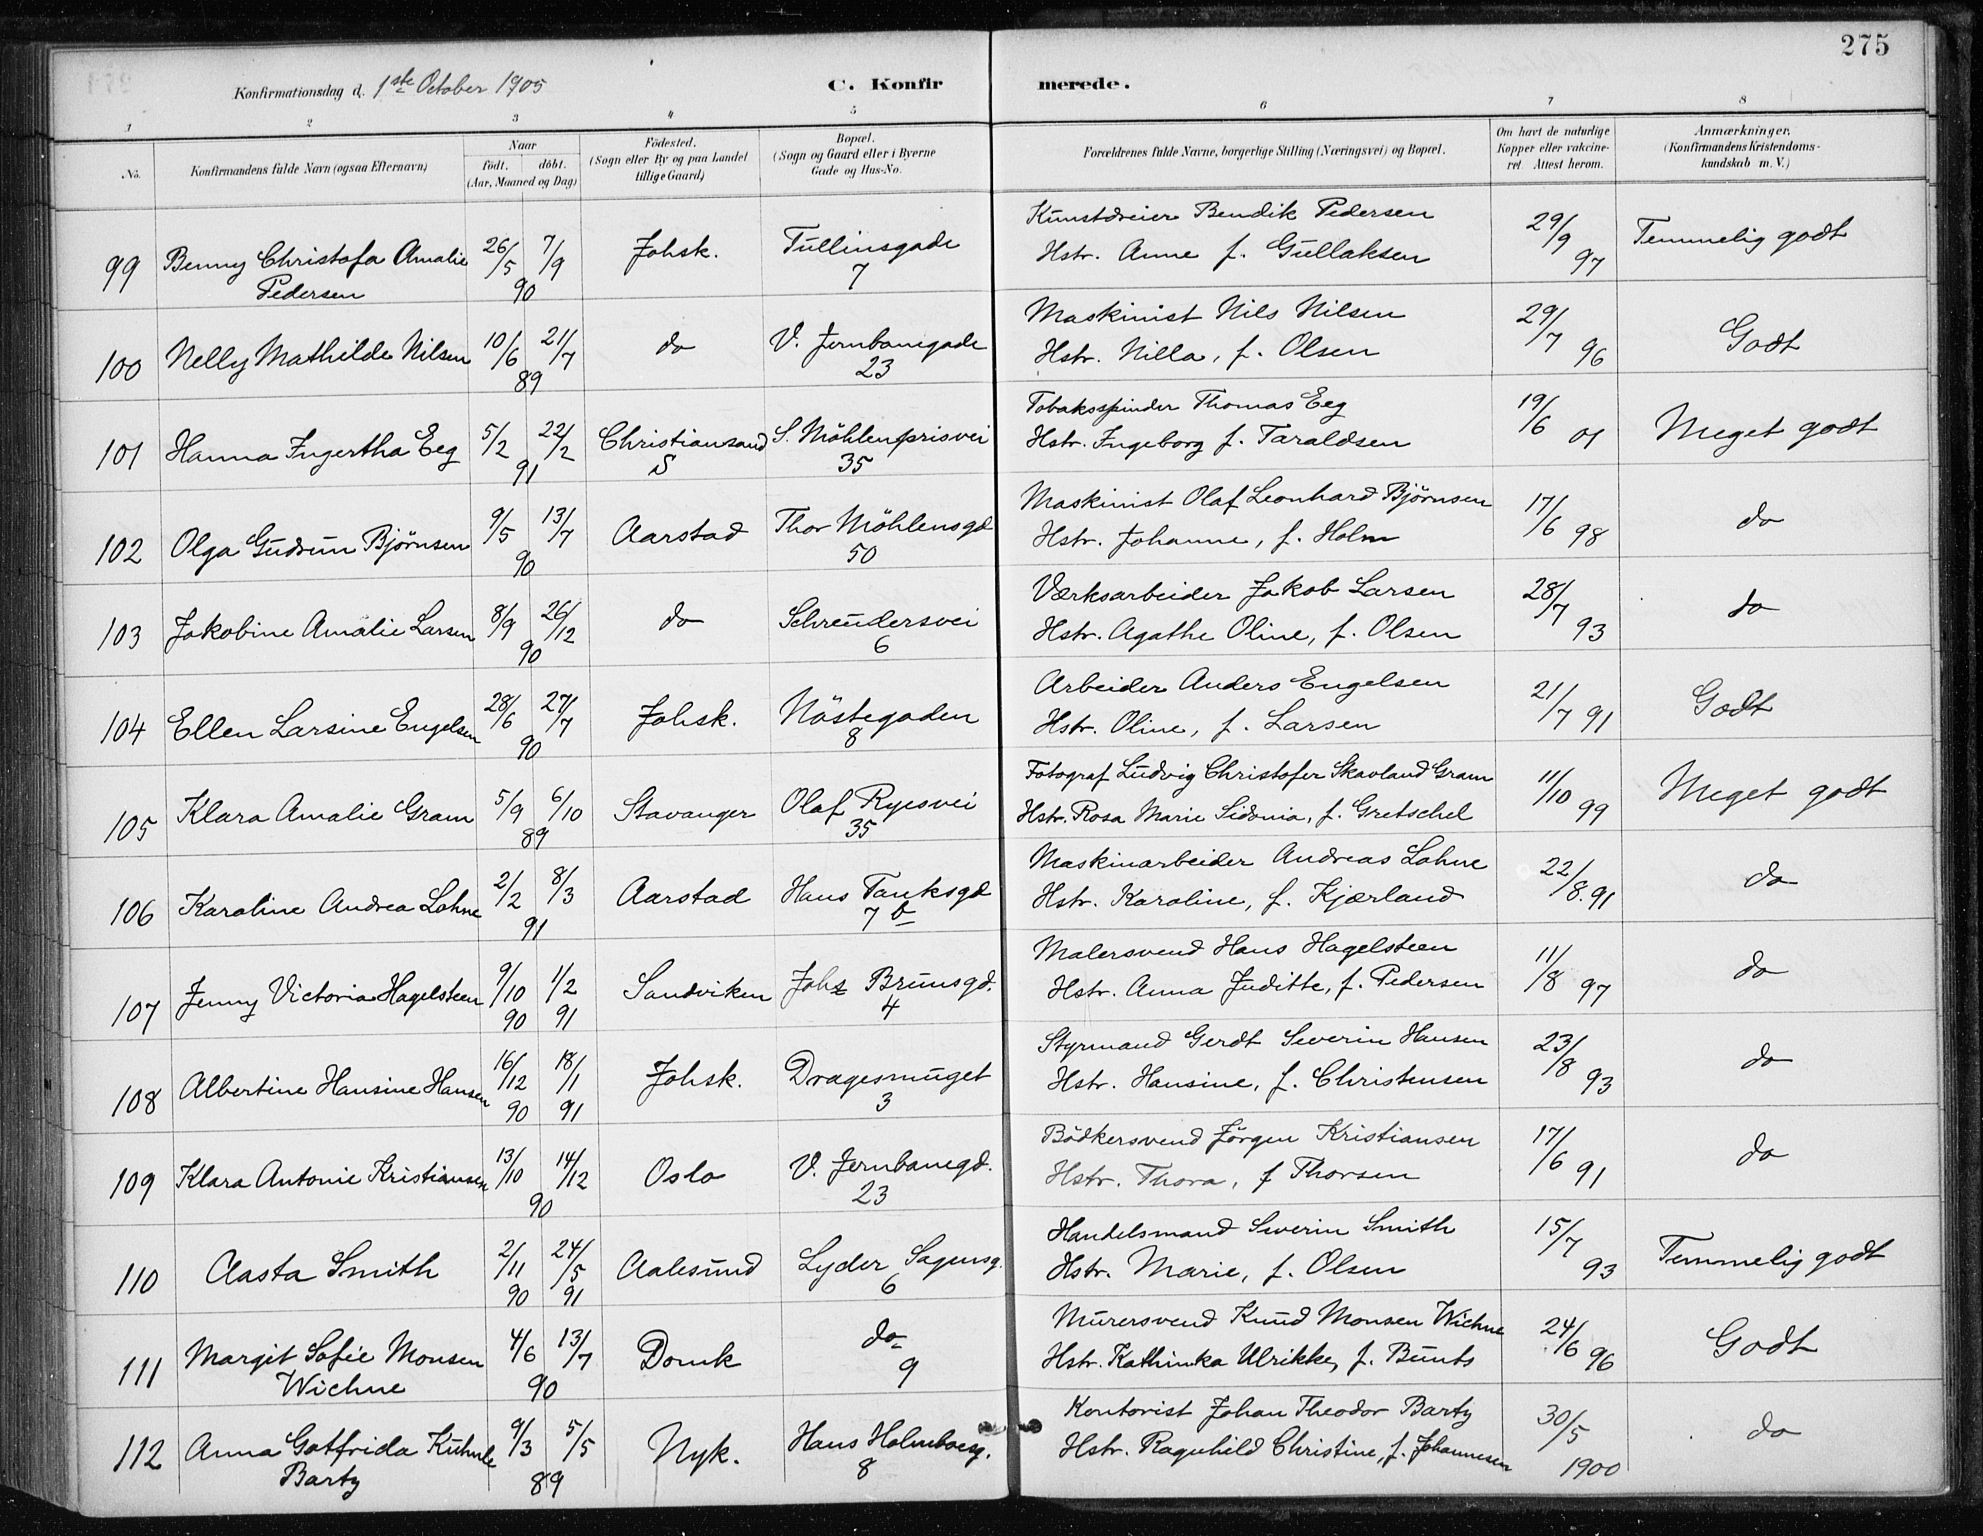 275
Konfirmationsdag d. 1ste October 1905 C. Konfirmerede.
1 2 3 4 5 6 7 8
No. Konfirmandens fulde Navn (ogsaa Efternavn) Naar födt. döbt. (Aar, Maaned og Dag) Födested. (Sogn eller By og paa Landet tillige Gaard) Bopæl. (Sogn og Gaard eller i Byerne Gade og Hus-No. Forældrenes fulde Navne, borgerlige Stilling (Næringsvei) og Bopæl. Om havt de naturlige Kopper eller vakcineret. Attest herom. Anmærkninger. (Konfirmandens Kristendomskundskab m. V.)
99 Benny Christofa Amalie Pedersen 26/5 7/9 90 Johsk. Tullinsgade 7 Kunstdreier Bendik Pedersen
Hstr. Anne f. Gullaksen 29/9 97 Temmelig godt
100 Nelly Mathilde Nilsen 10/6 21/7 89 do V. Jernbanegade 23 Maskinist Nils Nilsen
Hstr. Nilla, f. Olsen 29/7 96 Godt
101 Hanna Ingertha Eeg 5/2 22/2 91 Christiansand S S. Möhlenprisvei 35 Tobaksspinder Thomas Eeg
Hstr. Ingeborg f. Taraldsen 19/6 01 Meget godt
102 Olga Gudrun Bjørnsen 9/5 13/7 90 Aarstad Thor Möhlensgd 50 Maskinist Olaf Leonhard Bjørnsen
Hstr. Johanne, f. Holm 17/6 98 do
103 Jakobine Amalie Larsen 8/9 26/12 90 do Schreudersvei 6 Værksarbeider Jakob Larsen
Hstr. Agathe Oline, f. Olsen 28/7 93 do
104 Ellen Larsine Engelsen 28/6 27/7 90 Johsk. Nöstegaden 8 Arbeider Anders Engelsen
Hstr. Oline, f. Larsen 21/7 91 Godt
105 Klara Amalie Gram 5/9 6/10 89 Stavanger Olaf Ryesvei 35 Fotograf Ludvig Christofer Skavland Gram
Hstr. Rosa Marie Sidonia, f. Gretschel 11/10 99 Meget godt
106 Karoline Andrea Lohne 2/2 8/3 91 Aarstad Hans Tanksgd 7 b Maskinarbeider Andreas Lohne
Hstr. Karoline, f. Kjærland 22/8. 91 do
107 Jenny Victoria Hagelsteen 9/10 90 1/2 91 Sandviken Johs Brunsgd. 4 Malersvend Hans Hagelsteen
Hstr. Anna Juditte, f. Pedersen 11/8 97 do
108 Albertine Hansine Hansen 16/12 90 18/1 91 Johsk. Dragesmuget 3 Styrmand Gerdt Severin Hansen
Hstr. Hansine, f. Christensen 23/8 93 do
109 Klara Antonie Kristiansen 13/10 14/12 90 Oslo V. Jernbanegd. 23 Bödkersvend Jörgen Kristiansen
Hstr. Thora, f Thorsen 17/6 91 do
110 Aasta Smith 2/11 90 24/5 91 Aalesund Lyder Sagensg. 6 Handelsmand Severin Smith
Hstr. Marie, f. Olsen 15/7 93 Temmelig godt
111 Margit Sofie Monsen Wichne 4/6 13/7 90 Domk do 9 Murersvend Knud Monsen Wichne
Hstr. Kathinka Ulrikke, f. Bunts 24/6 96 Godt
112 Anna Gotfrida Kuhnle Bartz 9/3 5/5 89 Nyk. Hans Holmboesg. 8 Kontorist Johan Theodor Bartz
Hstr. Ragnhild Christine, f. Johannesen 30/5 1900 do